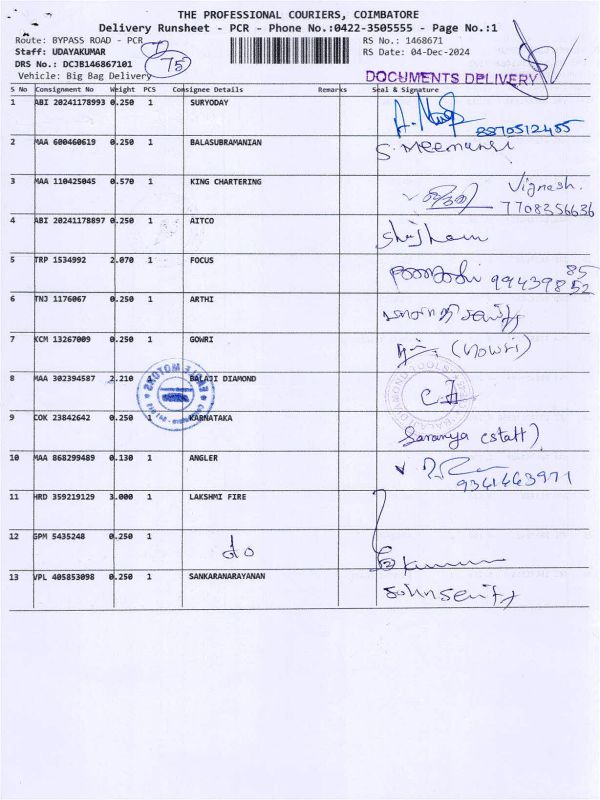 THE PROFESSIONAL COURIERS, COIMBATORE
Delivery Runsheet - PCR - Phone No.:0422-3505555 - Page No.:1
Route: BYPASS ROAD - PCR
RS No.: 1468671
Staff: UDAYAKUMAR
RS Date: 04-Dec-2024
DRS No.: DCJB146867101
75
Vehicle: Big Bag Delivery
DOCUMENTS DELIVERY
S No Consignment No Weight PCS Consignee Details Remarks Seal & Signature
1 ABI 20241178993 0.250 1 SURYODAY
8870512455
2 MAA 600460619 0.250 1 BALASUBRAMANIAN
3 MAA 110425045 0.570 1 KING CHARTERING Vignesh.
7708356636
4 ABI 20241178897 0.250 1 AITCO
5 TRP 1534992 2.070 1 FOCUS
6 TNJ 1176067 0.250 1 ARTHI
7 KCM 13267009 0.250 1 GOWRI (Gowri)
8 MAA 302394587 2.210 1 BALAJI DIAMOND
EAGLE MOTORS
9 COK 23842642 0.250 1 KARNATAKA
Saranya (staff)
10 MAA 868299489 0.130 1 ANGLER
9361463971
11 HRD 359219129 3.000 1 LAKSHMI FIRE
12 GPM 5435248 0.250 1 do
13 VPL 405853098 0.250 1 SANKARANARAYANAN